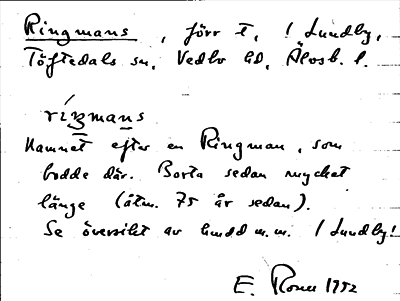 Ringmans, förr t. / Lundby,
Töftedals sn, Vedbo hd, Älvsb. l.
ríŋmans
Namnet efter en Ringman, som
bodde där. Borta sedan mycket
länge (åtm. 75 år sedan).
Se översikt av hmdd m.m. / Lundby!
E. 1952